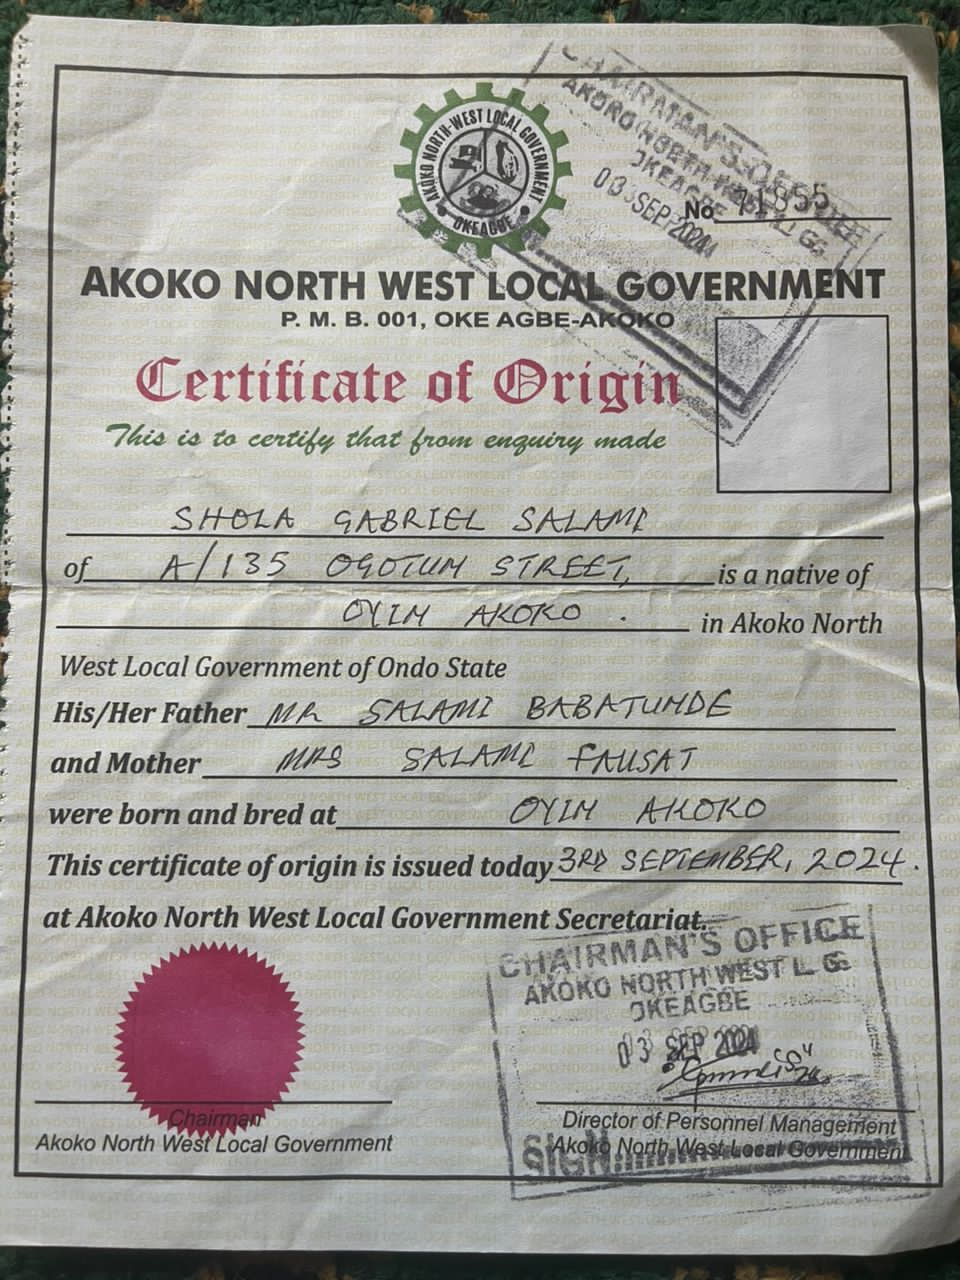 CHAIRMAN'S OFFICE
AKOKO NORTH WEST L. GG
OKEAGBE
03 SEP 2024
AKOKO NORTH-WEST LOCAL GOVERNMENT
OKEAGBE
No 11955
AKOKO NORTH WEST LOCAL GOVERNMENT
P. M. B. 001, OKE AGBE-AKOKO
Certificate of Origin
This is to certify that from enquiry made
SHOLA GABRIEL SALAMI
of A/135 OGOTUM STREET, is a native of
OYIN AKOKO . in Akoko North
West Local Government of Ondo State
His/Her Father MR SALAMI BABATUNDE
and Mother MRS SALAMI FAUSAT
were born and bred at OYIN AKOKO
This certificate of origin is issued today 3RD SEPTEMBER, 2024.
at Akoko North West Local Government Secretariat.
CHAIRMAN'S OFFICE
AKOKO NORTH WEST L. GG
OKEAGBE
03 SEP 2024
Chairman
Akoko North West Local Government
Director of Personnel Management
Akoko North West Local Government
SIGN